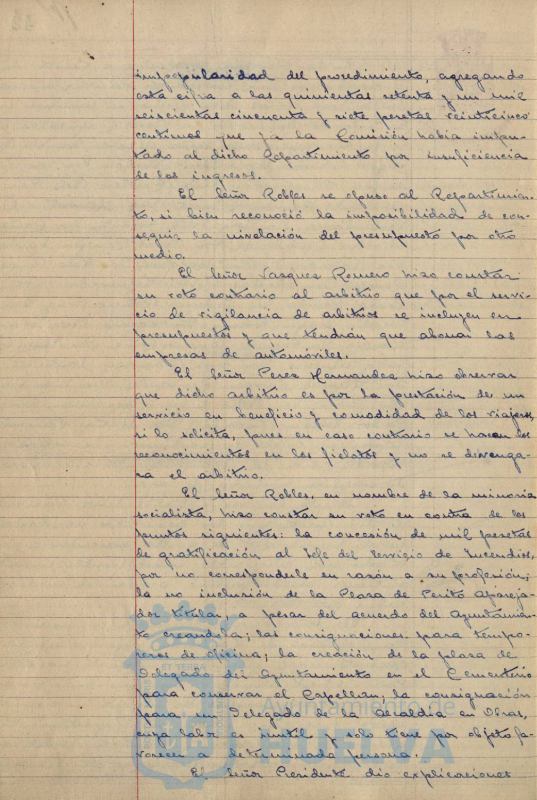 impopularidad del procedimiento, agregando
esta cifra a las quinientas setenta y un mil
seiscientas cincuenta y siete pesetas veinticinco
centimos que ya la Comisión habia impu-
tado al dicho Repartimiento por insuficiencia
de los ingresos.
El Señor Robles se opuso al Repartimien-
to, si bien reconoció la imposibilidad de con-
seguir la nivelación del presupuesto por otro
medio.
El Señor Vasquez Romero hizo constar
su voto contrario al arbitrio que por el servi-
cio de vigilancia de arbitrios se incluyen en
presupuestos y que tendrán que abonar las
empresas de automóviles.
El Señor Perez Hernandez hizo observar
que dicho arbitrio es por la prestación de un
servicio en beneficio y comodidad de los viajeros,
si lo solicita, pues en caso contrario se hacen los
reconocimientos en los fielatos y no se devenga-
ra el arbitrio.
El Señor Robles, en nombre de la minoria
socialista, hizo constar su voto en contra de los
puntos siguientes: la concesión de mil pesetas
de gratificación al Jefe del Servicio de Incendios,
por no corresponderle en razón a su profesión;
la no inclusión de la Plaza de Perito Apareja-
dor titular, a pesar del acuerdo del Ayuntamien-
to creandola; las consignaciones para tempo-
reros de oficina; la creación de la plaza de
Delegado del Ayuntamiento en el Cementerio
para conservar el Capellan; la consignación
para un Delegado de la Alcaldia en Obras,
cuya labor es inutil y solo tiene por objeto fa-
vorecer a determinada persona.
El Señor Presidente dio explicaciones
Ayuntamiento de
HUELVA